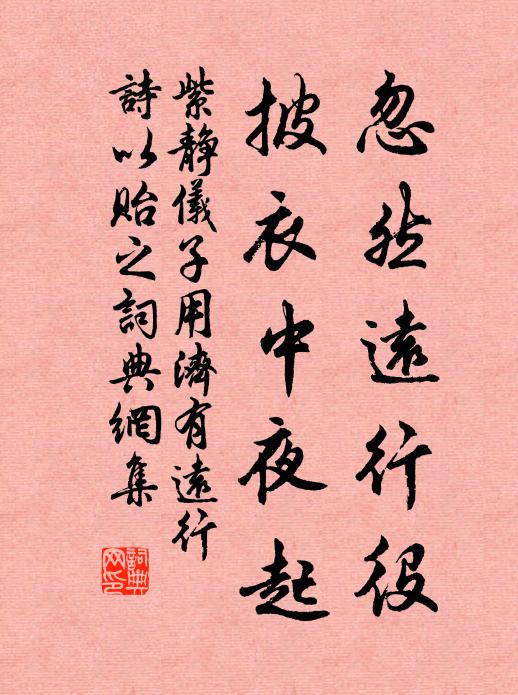 忽然遠行役
披衣中夜起
紫靜儀子用濟有遠行
詩以貽之詞典網集
詞典
网印